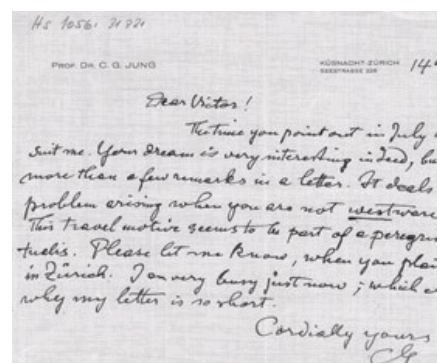 Hs 1056: 31 221
PROF. DR. C. G. JUNG
KÜSNACHT-ZÜRICH
SEESTRASSE 228
14
Dear Victor!
The time you point out in July
suit me. Your dream is very interesting indeed, bu
more than a few remarks in a letter. It deals
problem arising when you are not westware
This travel motive seems to be part of a peregri
tudis. Please let me know, when you plan
in Zürich. I am very busy just now; which
why my letter is so short.
Cordially yours
CG